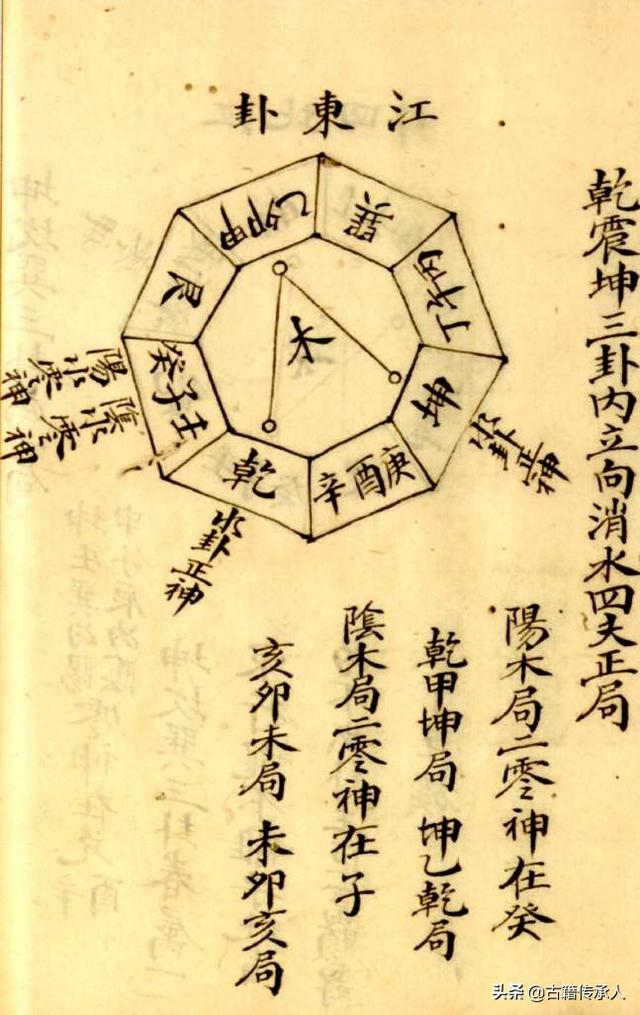 江東卦
乾震坤三卦内立向消水四大正局
巽
丙午丁
坤
庚酉辛
乾
壬子癸
艮
甲卯乙
木
水卦正神
水卦正神
陰水零神
陽水零神
陽木局二零神在癸
乾甲坤局 坤乙乾局
陰木局二零神在子
亥卯未局 未卯亥局
头条 @古籍传承人